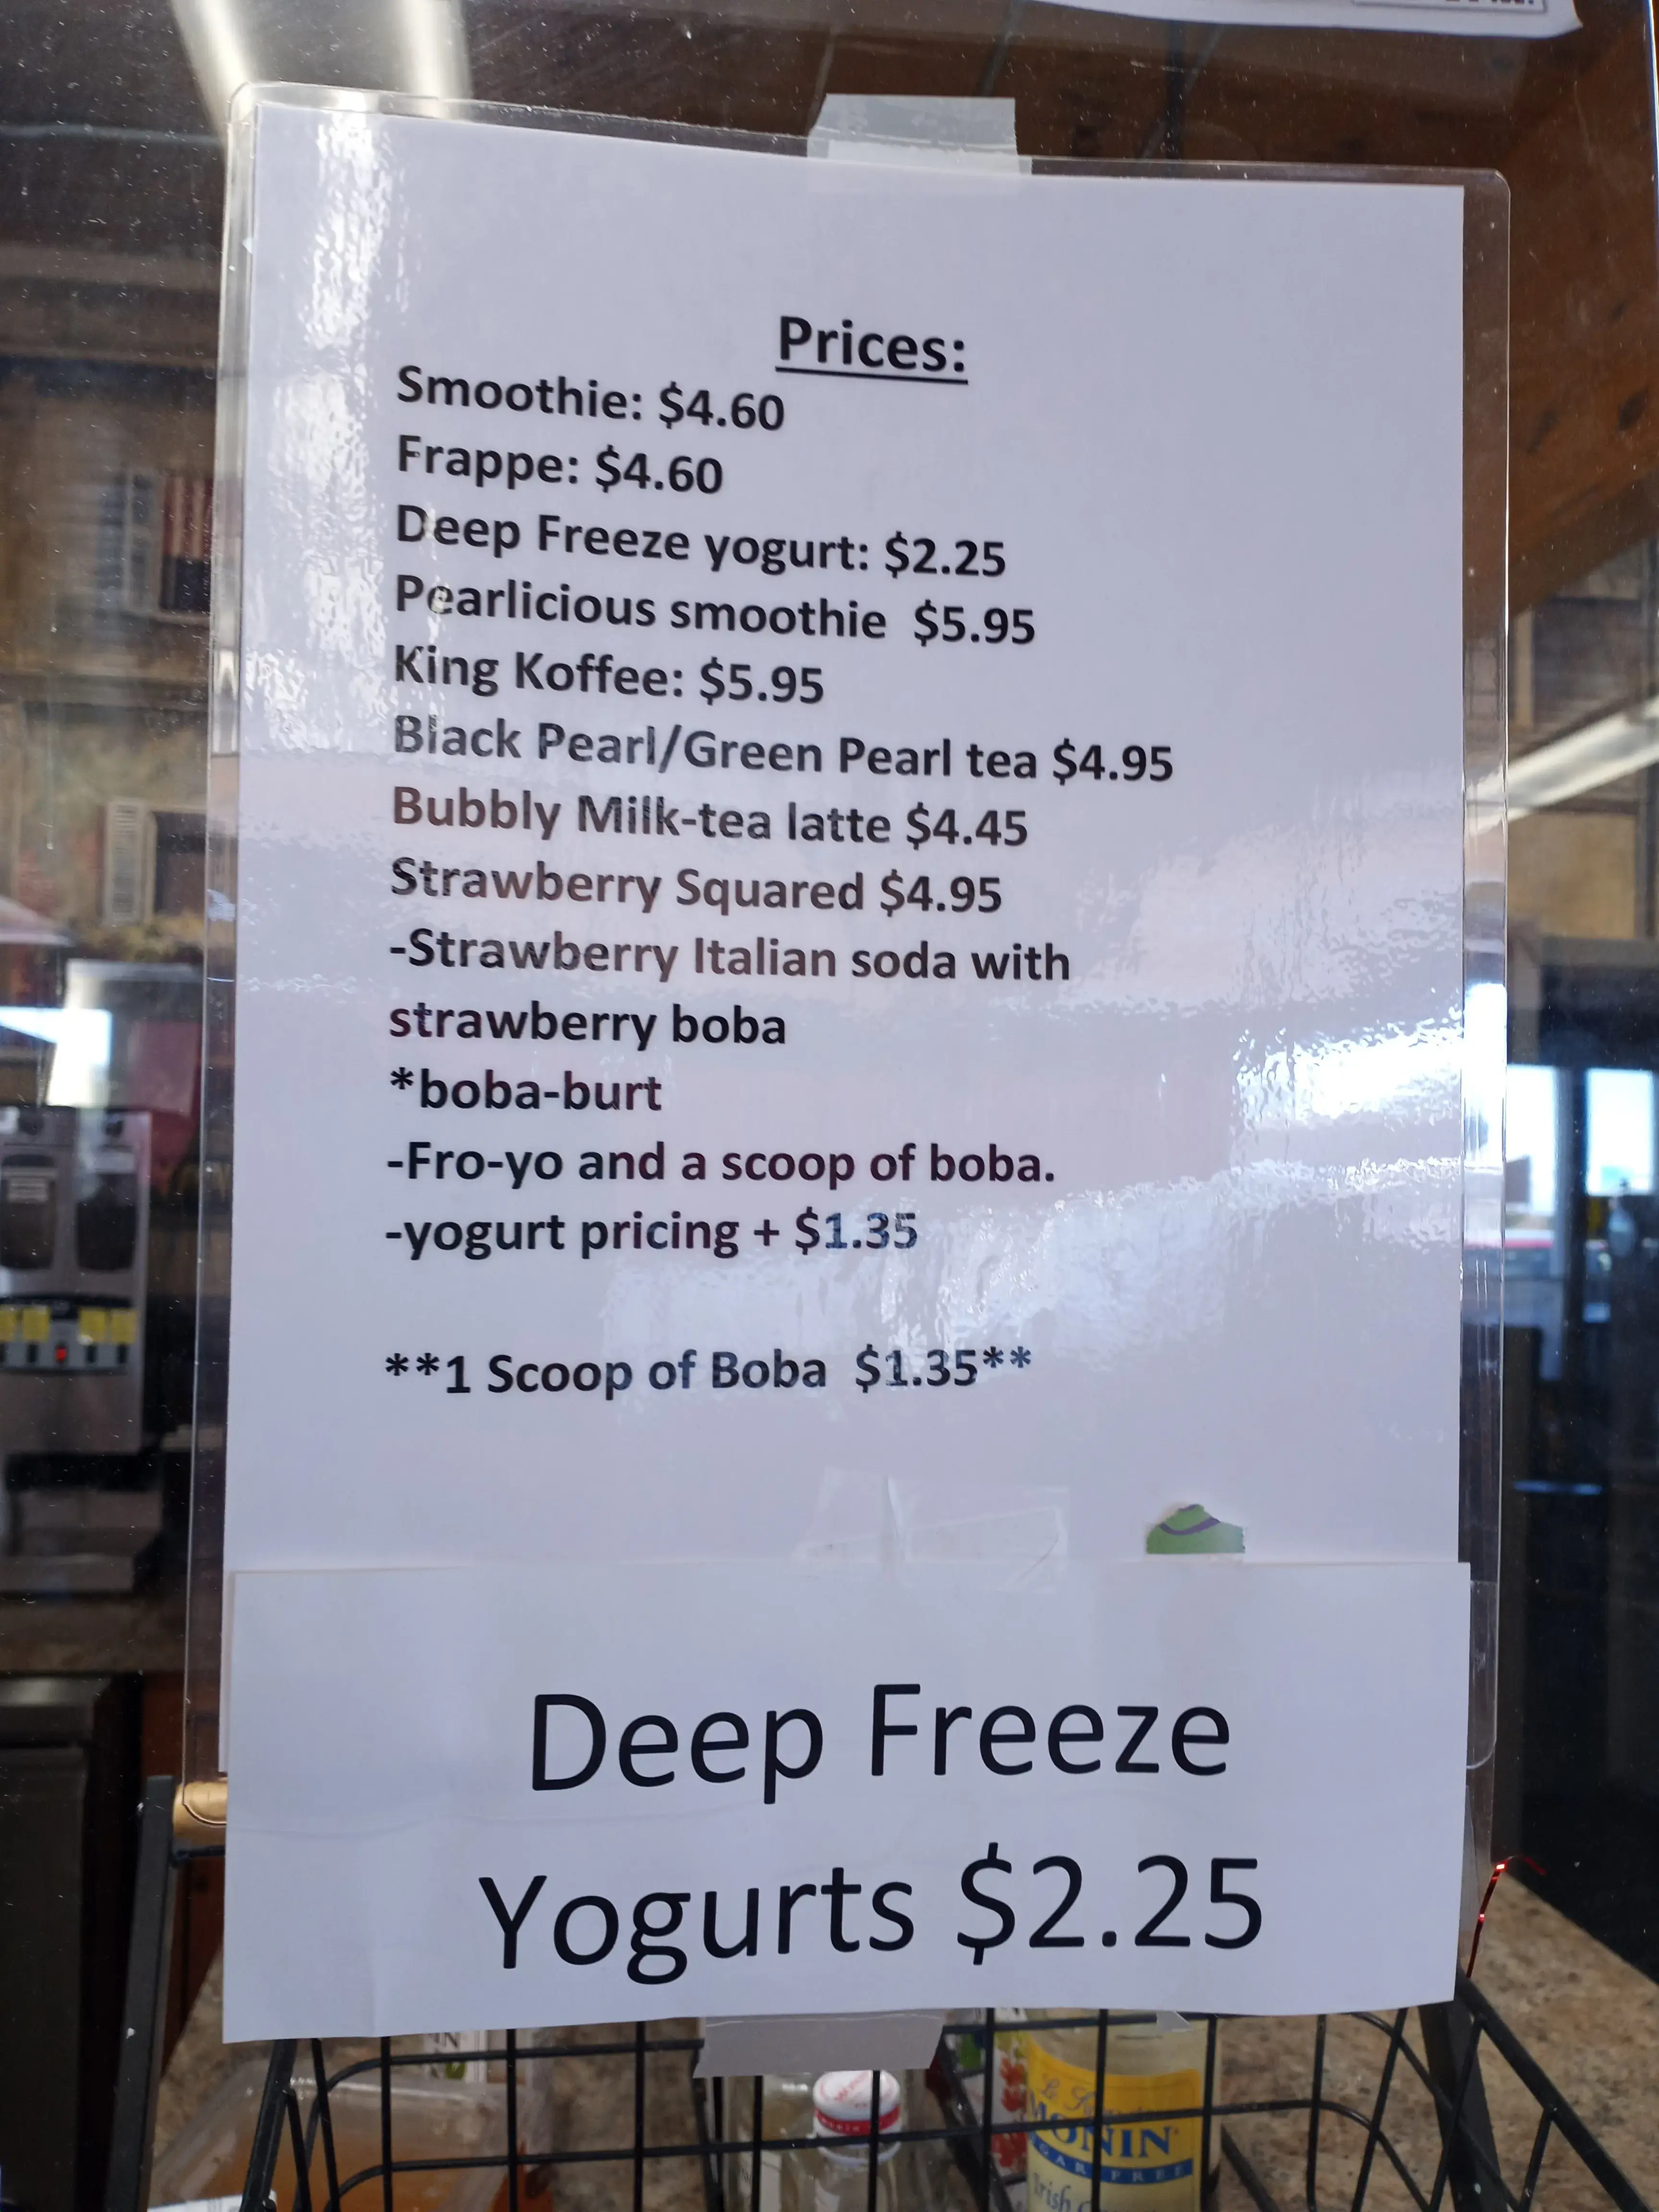 Prices:
Smoothie: $4.60
Frappe: $4.60
Deep Freeze yogurt: $2.25
Pearlicious smoothie  $5.95
King Koffee: $5.95
Black Pearl/Green Pearl tea $4.95
Bubbly Milk-tea latte $4.45
Strawberry Squared $4.95
-Strawberry Italian soda with
strawberry boba
*boba-burt
-Fro-yo and a scoop of boba.
-yogurt pricing + $1.35
**1 Scoop of Boba  $1.35**
Deep Freeze
Yogurts $2.25
MONIN
FREE
Irish